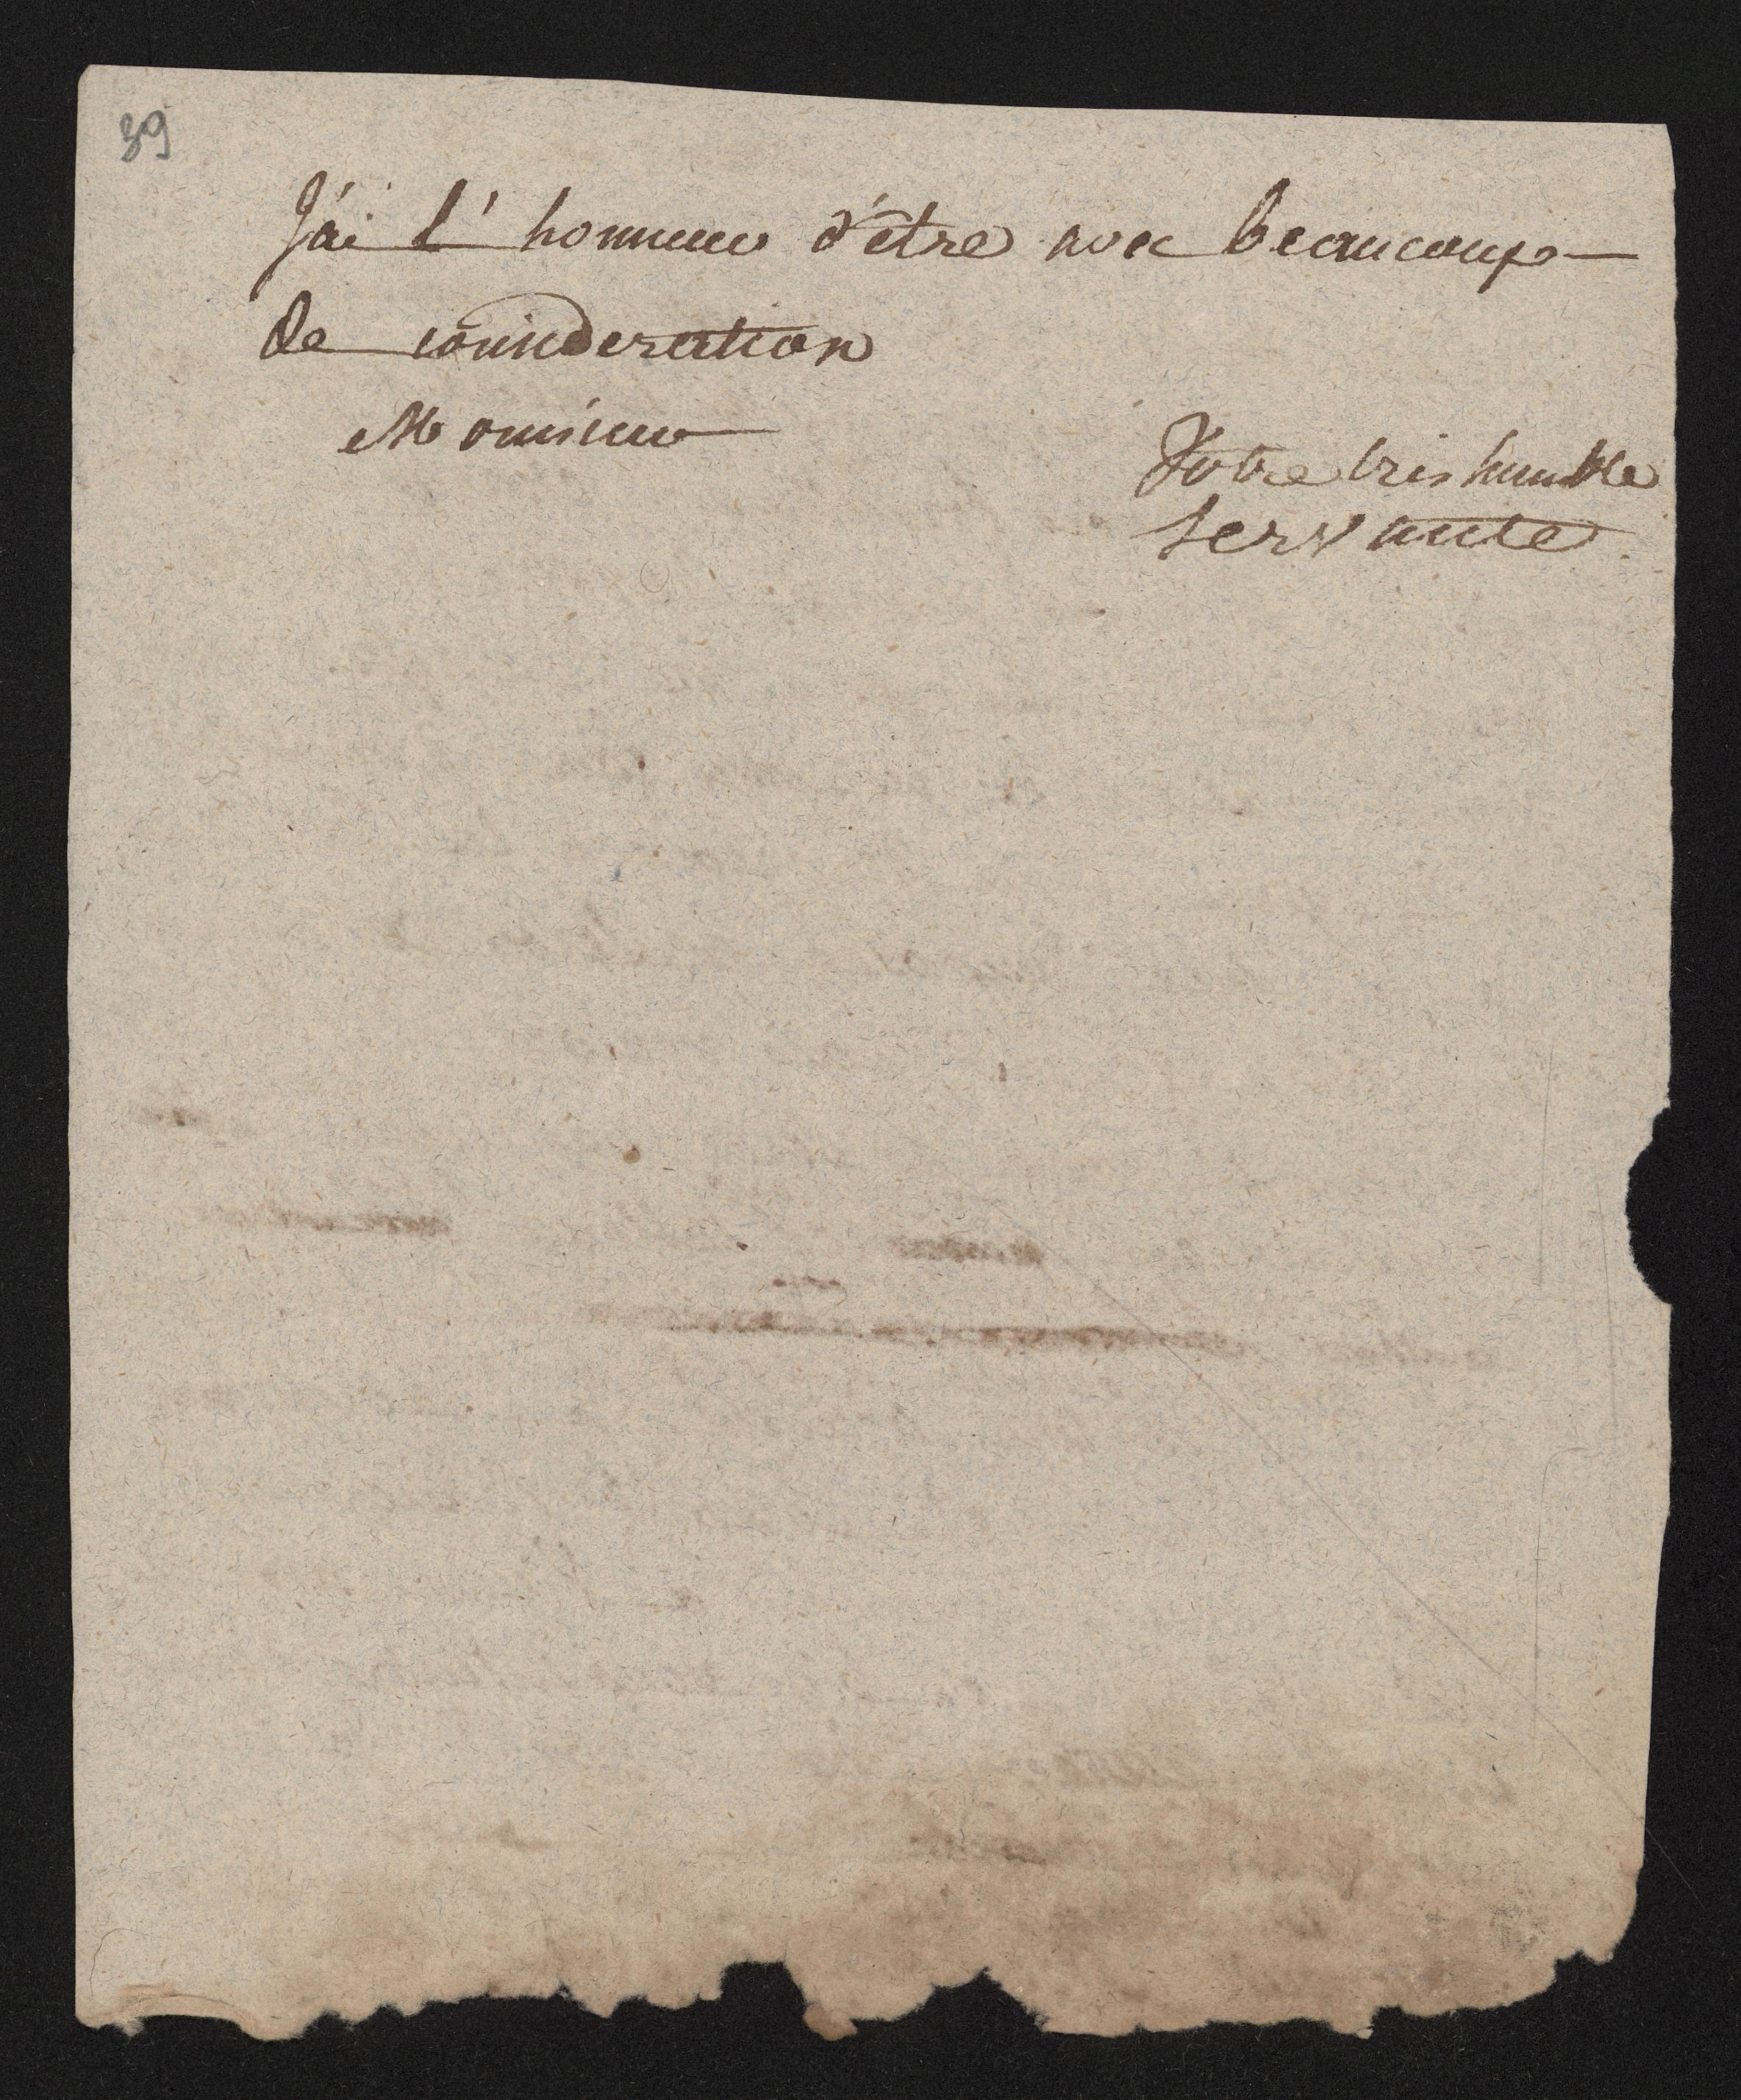 39
J'ai l'honneur d'être avec beaucoup
de considération
Monsieur
Votre très humble
servante.